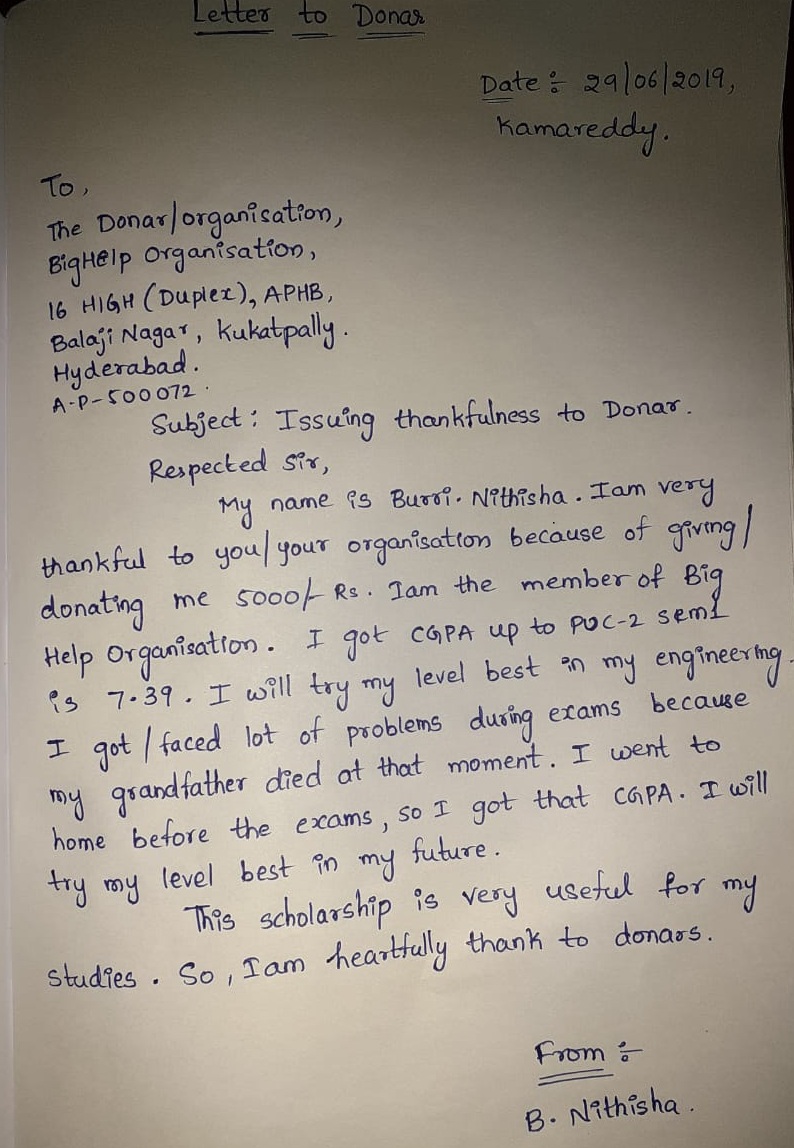 Letter to Donar
Date :- 29/06/2019,
Kamareddy.
To,
The Donar/organisation,
BigHelp Organisation,
16 HIGH (Duplex), APHB,
Balaji Nagar, Kukatpally.
Hyderabad.
A-P-500072.
Subject: Issuing thankfulness to Donar.
Respected Sir,
My name is Burri. Nithisha. Iam very
thankful to you/your organisation because of giving/
donating me 5000/- Rs. Iam the member of Big
Help Organisation. I got CGPA up to PUC-2 sem1
is 7.39. I will try my level best in my engineering.
I got/faced lot of problems during exams because
my grandfather died at that moment. I went to
home before the exams, so I got that CGPA. I will
try my level best in my future.
This scholarship is very useful for my
studies. So, Iam heartfully thank to donars.
From :-
B. Nithisha.